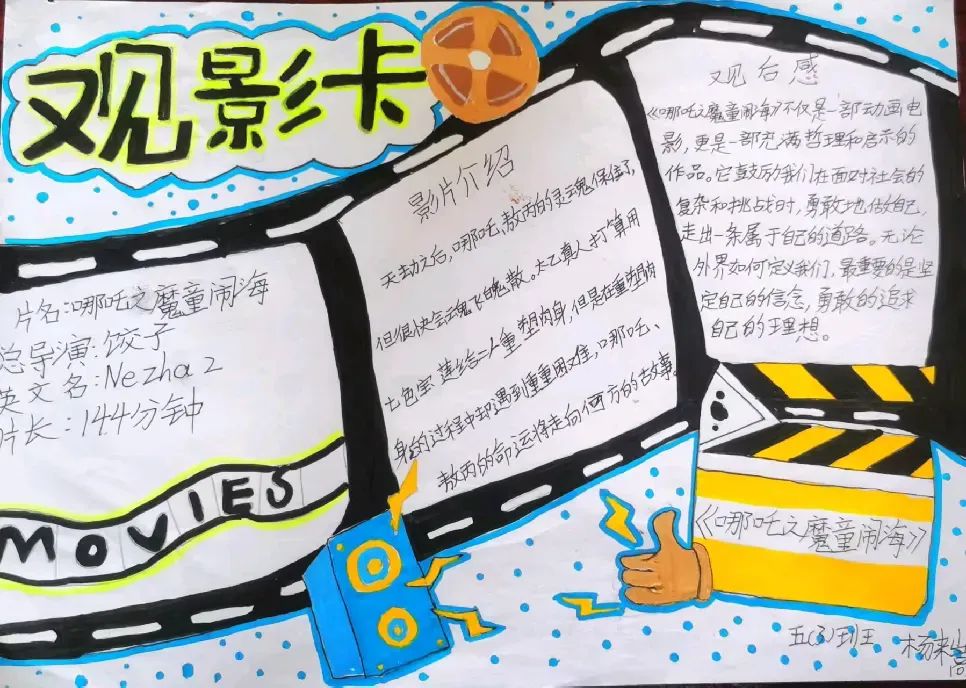 观影卡
片名:哪吒之魔童闹海
总导演:饺子
英文名:Nezha 2
片长:144分钟
MOVIES
影片介绍
天劫之后,哪吒,敖丙的灵魂保住了,
但很快会魂飞魄散。太乙真人打算用
七色宝莲给二人重塑肉身,但是在重塑肉
身的过程中却遇到重重困难,哪吒、
敖丙的命运将走向何方的故事。
观后感
《哪吒之魔童闹海》不仅是一部动画电
影,更是一部充满哲理和启示的
作品。它鼓励我们在面对社会的
复杂和挑战时,勇敢地做自己,
走出一条属于自己的道路。无论
外界如何定义我们,最重要的是坚
定自己的信念,勇敢的追求
自己的理想。
《哪吒之魔童闹海》
五(3)班
杨